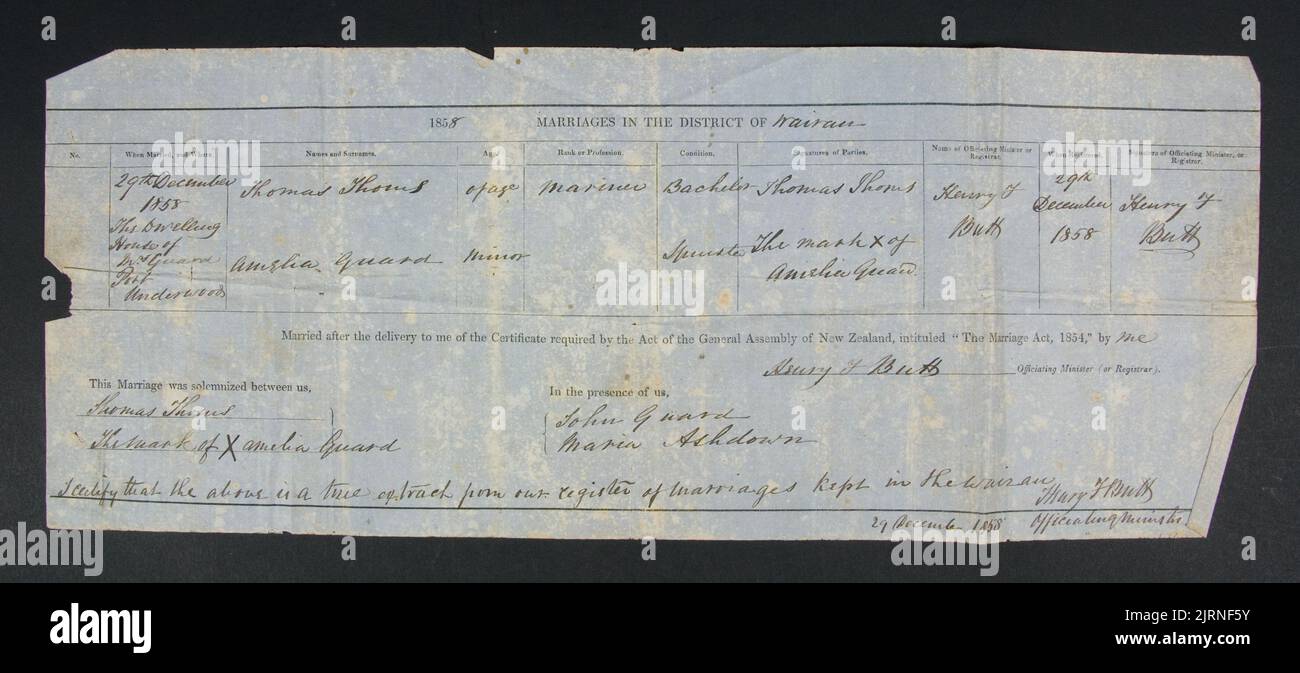 1858 MARRIAGES IN THE DISTRICT OF Wairau
No. When Married, and Where. Names and Surnames. Age. Rank or Profession. Condition. Signatures of Parties. Name of Officiating Minister or Registrar. When Registered. Signature of Officiating Minister, or Registrar.
29th December
1858
The Dwelling
House of
Mrs Guard
Port
Underwood
Thomas Thoms of age Mariner Bachelor Thomas Thoms
Amelia Guard Minor Spinster The mark x of
Amelia Guard
Henry F
Butt
29th
December
1858
Henry F
Butt
Married after the delivery to me of the Certificate required by the Act of the General Assembly of New Zealand, intituled "The Marriage Act, 1854," by me
Henry F Butt Officiating Minister (or Registrar).
This Marriage was solemnized between us,
Thomas Thoms
The mark of X Amelia Guard
In the presence of us,
John Guard
Maria Ashdown
I certify that the above is a true extract from our register of marriages kept in the Wairau
Henry F Butt
29 December 1858 Officiating Minister
alamy
Image ID: 2JRNF5Y
www.alamy.com